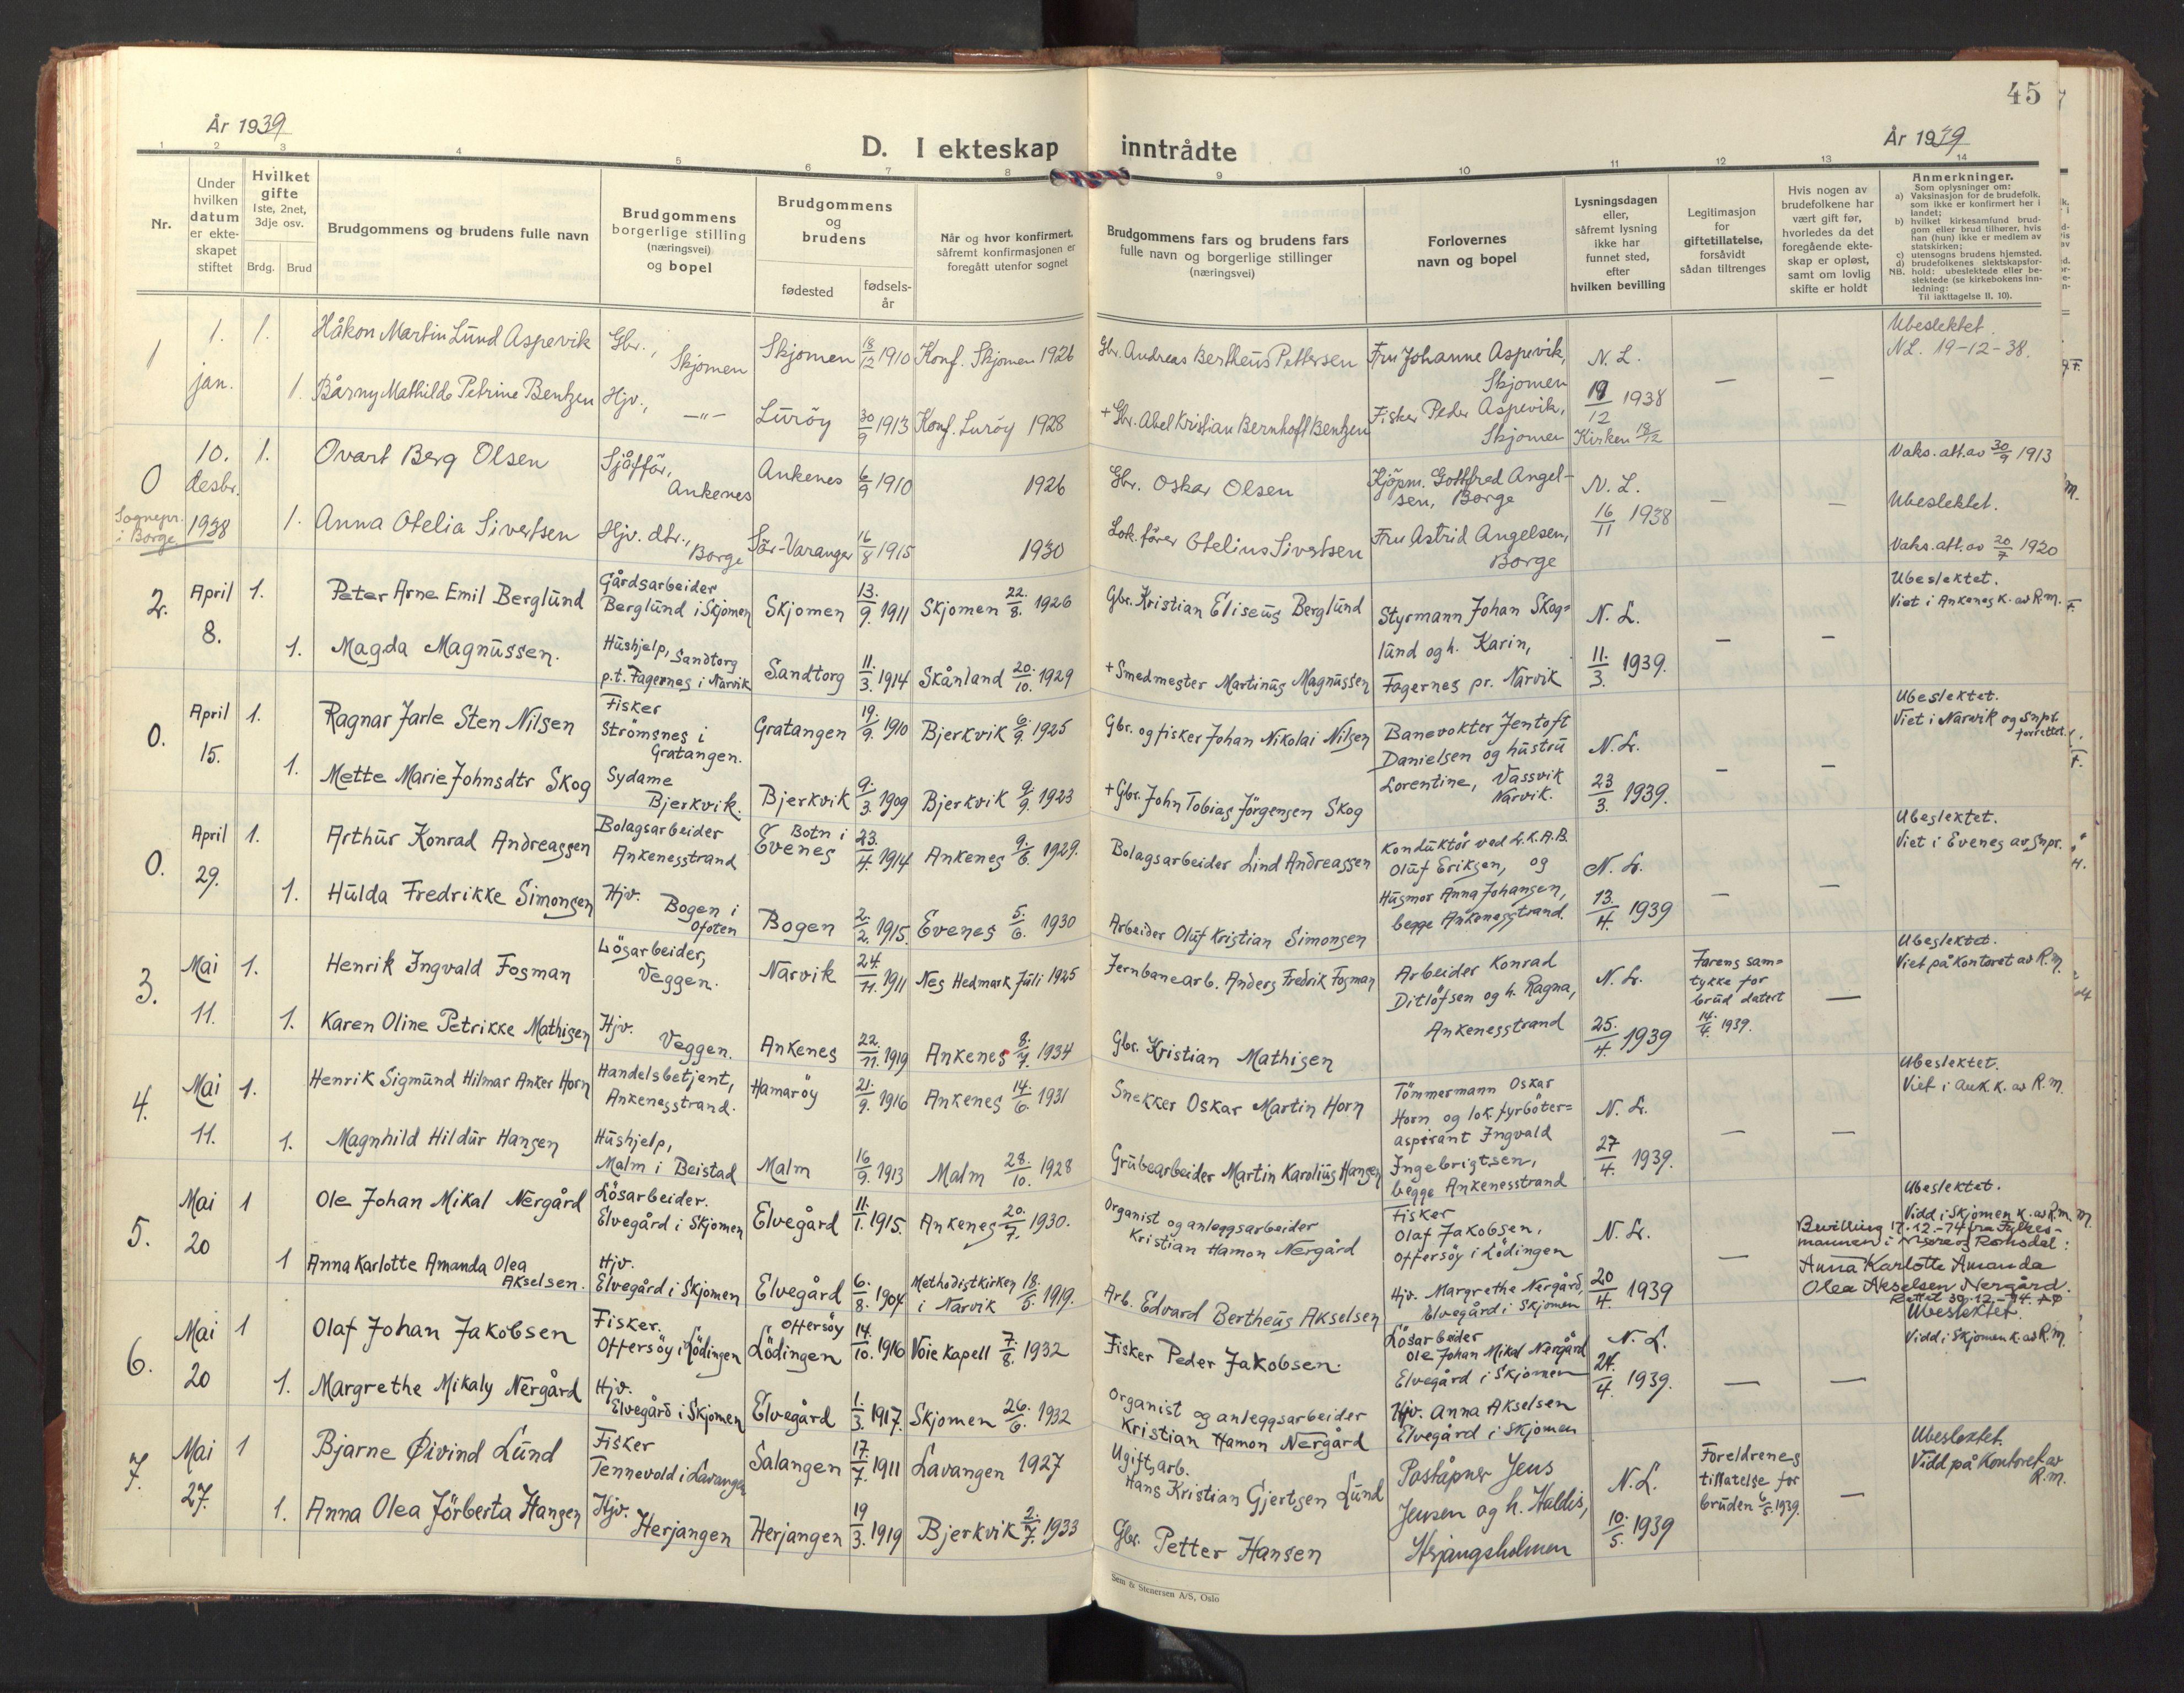 45
År 1939
År 1939
D. I ekteskap inntrådte
1 2 3 4 5 6 7 8 9 10 11 12 13 14
Nr.
Under hvilken datum er ekte-skapet stiftet
Hvilket gifte
1ste, 2net, 3dje osv.
Brdg. Brud
Brudgommens og brudens fulle navn
Brudgommens borgerlige stilling (næringsvei) og bopel
Brudgommens og brudens
fødested
fødsels-år
Når og hvor konfirmert, såfremt konfirmasjonen er foregått utenfor sognet
Brudgommens fars og brudens fars fulle navn og borgerlige stillinger (næringsvei)
Forlovernes navn og bopel
Lysningsdagen eller, såfremt lysning ikke har funnet sted, efter hvilken bevilling
Legitimasjon for giftetillatelse, forsåvidt sådan tiltrenges
Hvis nogen av brudefolkene har vært gift før, hvorledes da det foregående ekte-skap er opløst, samt om lovlig skifte er holdt
Anmerkninger.
Som oplysninger om:
a) Vaksinasjon for de brudefolk, som ikke er konfirmert her i landet;
b) hvilket kirkesamfund brud-gom eller brud tilhører, hvis han (hun) ikke er medlem av statskirken;
c) utensogns brudens hjemsted.
d) brudefolkenes slektskapsfor-hold: ubeslektede eller be-slektede (se kirkebokens inn-ledning:
NB. Til iakttagelse II. 10).
1 1. jan. 1. Håkon Martin Lund Aspevik Gbr., Skjomen Skjomen 18/12 1910 Konf. Skjomen 1926 Gbr. Andreas Bertheus Pettersen Fru Johanne Aspevik, Skjomen N. L. 19/12 1938 — — Ubeslektet. N.L. 19-12-38.
1. Bårny Mathilde Petrine Bentzen Hjv., —"— Luröy 30/9 1913 Konf. Luröy 1928 + Gbr. Abel Kristian Bernhoft Bentzen Fisker Peder Aspevik, Skjomen Kirken 18/12
0 Sognepr. i Borge 10. desbr. 1938 1. Ovart Berg Olsen Sjåfför, Ankenes Ankenes 6/9 1910 1926 Gbr. Oskar Olsen Kjöpm. Gottfred Angel-sen, Borge N. L. 16/11 1938 — — Vaks. att. av 30/9 1913 Ubeslektet.
1. Anna Otelia Sivertsen Hjv. dtr., Borge Sör-Varanger 16/8 1915 1930 Lok. förer Otelius Sivertsen Fru Astrid Angelsen, Borge Vaks. att. av 20/7 1920
2. April 8. 1. Peter Arne Emil Berglund Gårdsarbeider Berglund i Skjomen Skjomen 13./9. 1911 Skjomen 22./8. 1926 Gbr. Kristian Eliseus Berglund Styrmann Johan Skog=lund og h. Karin, Fagernes pr. Narvik N. L. 11./3. 1939. — — Ubeslektet. Viet i Ankenes K. av R.m.
1. Magda Magnussen. Hushjelp, Sandtorg p.t. Fagernes i Narvik Sandtorg 11./3. 1914 Skånland 20./10. 1929 + Smedmester Martinus Magnussen
0. April 15. 1. Ragnar Jarle Sten Nilsen Fisker Strömsnes i Gratangen. Gratangen 19./9. 1910 Bjerkvik 6./9. 1925 Gbr. og fisker Johan Nikolai Nilsen Banevokter Jentoft Danielsen og hustru Lorentine, Vassvik Narvik. N. L. 23/3. 1939. — — Ubeslektet. Viet i Narvik og Snpr. forrettet.
1. Mette Marie Johnsdtr Skog Sydame Bjerkvik. Bjerkvik 9./3. 1909 Bjerkvik 9./9. 1923 + Gbr. John Tobias Jörgensen Skog
0. April 29. 1. Arthur Konrad Andreassen Bolagsarbeider Ankenesstrand Botn i Evenes 23./4. 1914 Ankenes 9./6. 1929. Bolagsarbeider Lind Andreassen Konduktör ved L.K.A.B. Oluf Eriksen, og Husmor Anna Johansen, begge Ankenesstrand N. L. 13./4. 1939 — — Ubeslektet. Viet i Evenes av Snpr.
1. Hulda Fredrikke Simonsen Hjv. Bogen i Ofoten Bogen 2./2. 1915. Evenes 5./6. 1930 Arbeider Oluf Kristian Simonsen
3. Mai 11. 1. Henrik Ingvald Fosman Lösarbeider, Veggen. Narvik 24./11. 1911 Nes Hedmark Juli 1925 Jernbanearb. Anders Fredrik Fosman Arbeider Konrad Ditlöfsen og h. Ragna, Ankenesstrand N. L. 25./4. 1939 Farens sam=tykke for brud datert 14./4. 1939. — Ubeslektet. Viet på kontoret av R.m.
1. Karen Oline Petrikke Mathisen Hjv. Veggen. Ankenes 22./11. 1919 Ankenes 8./7. 1934 Gbr. Kristian Mathisen
4. Mai 11. 1. Henrik Sigmund Hilmar Anker Horn Handelsbetjent, Ankenesstrand. Hamaröy 21./9. 1916 Ankenes 14./6. 1931 Snekker Oskar Martin Horn Tömmermann Oskar Horn og lok. fyrböter=aspirant Ingvald Ingebrigtsen, begge Ankenesstrand N. L. 27/4. 1939. — — Ubeslektet. Viet i Ank k. av R.m.
1. Magnhild Hildur Hansen Hushjelp, Malm i Beistad Malm 16/9. 1913 Malm 28./10. 1928 Grubearbeider Martin Karolius Hansen
5. Mai 20 1 Ole Johan Mikal Nergård Lösarbeider. Elvegård i Skjomen Elvegård 11./1. 1915. Ankenes 20./7. 1930. Organist og anleggsarbeider Kristian Hamon Nergård Fisker Olaf Jakobsen, Offersöy i Lödingen N. L. 20/4. 1939 — Ubeslektet. Vidd i Skjomen K. av R.m.
Bevilling 17.12.-74 fra Fylkes-mannen i Møre og Romsdal: Anna Karlotte Amanda Olea Akselsen Nergård. Rettet 30.12.-74.
1 Anna Karlotte Amanda Olea Akselsen. Hjv. Elvegård i Skjomen Elvegård 6./8. 1904 Methodistkirken i Narvik 18./5. 1919. Arb. Edvard Bertheus Akselsen Hjv. Margrethe Nergård, Elvegård i Skjomen
6. Mai 20 1 Olaf Johan Jakobsen Fisker. Offersöy i Lödingen Offersöy Lödingen 14./10. 1916 Voie Kapell 7./8. 1932 Fisker Peder Jakobsen. Lösarbeider Ole Johan Mikal Nergård Elvegård i Skjomen N. L. 24./4. 1939. — — Ubeslektet. Vidd i Skjomen K. av R.m.
1. Margrethe Mikaly Nergård Hjv. Elvegård i Skjomen Elvegård 1./3. 1917. Skjomen 26./6. 1932 Organist og anleggsarbeider Kristian Hamon Nergård Hjv. Anna Akselsen Elvegård i Skjomen
7. Mai 27. 1 Bjarne Øivind Lund Fisker Tennevold i Lavangen Salangen 17./7. 1911 Lavangen 1927 Ugift, arb. Hans Kristian Gjertsen Lund Poståpner Jens Jensen og h. Haldis, Herjangsholmen N. L. 10./5. 1939 Foreldrenes tillatelse for bruden 6./5. 1939. — Ubeslektet. Vidd på Kontoret av R.m.
1. Anna Olea Jörberta Hansen Hjv. Herjangen Herjangen 19/3. 1919 Bjerkvik 2./7. 1933 Gbr. Petter Hansen
Sem & Stenersen A/S, Oslo